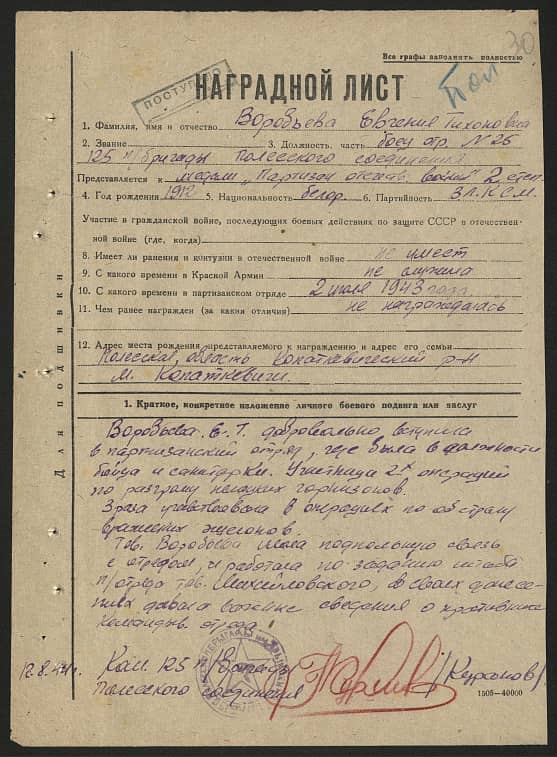 30
Все графы заполнять полностью
Пол
ПОСТУП
НАГРАДНОЙ ЛИСТ
1. Фамилия, имя и отчество Воробьева Евгения Тихоновна
2. Звание 3. Должность, часть боец отр. № 26
125 п/бригады Полесского соединения
Представляется к медали „Партизан отечеств. войны" 2 степ.
4. Год рождения 1912 5. Национальность белор. 6. Партийность ВЛКСМ.
Участие в гражданской войне, последующих боевых действиях по защите СССР в отечествен-
ной войне (где, когда)
8. Имеет ли ранения и контузии в отечественной войне не имеет
9. С какого времени в Красной Армии не служила
10. С какого времени в партизанском отряде 2 июля 1943 года
11. Чем ранее награжден (за какия отличия) не награждалась
12. Адрес места рождения представляемого к награждению и адрес его семьи
Полесская область Копаткевический р-н
м. Копаткевичи.
Для подшивки
1. Краткое, конкретное изложение личного боевого подвига или заслуг
Воробьева Е. Т. добровольно вступила
в партизанский отряд, где была в должности
бойца и санитарки. Участница 2х операций
по разгрому немецких гарнизонов.
участвовала в операциях по обстрелу
вражеских эшелонов.
Тов. Воробьева имела подпольную связь
с отрядом, и работала по заданию штаба
п/отряда тов. Михайловского, в своих донесе-
ниях давала важные сведения о противнике
командыв. отряда
12.8.44 г. Ком. 125 п/бригады
Полесского соединения /Курмонов/
1505-40000